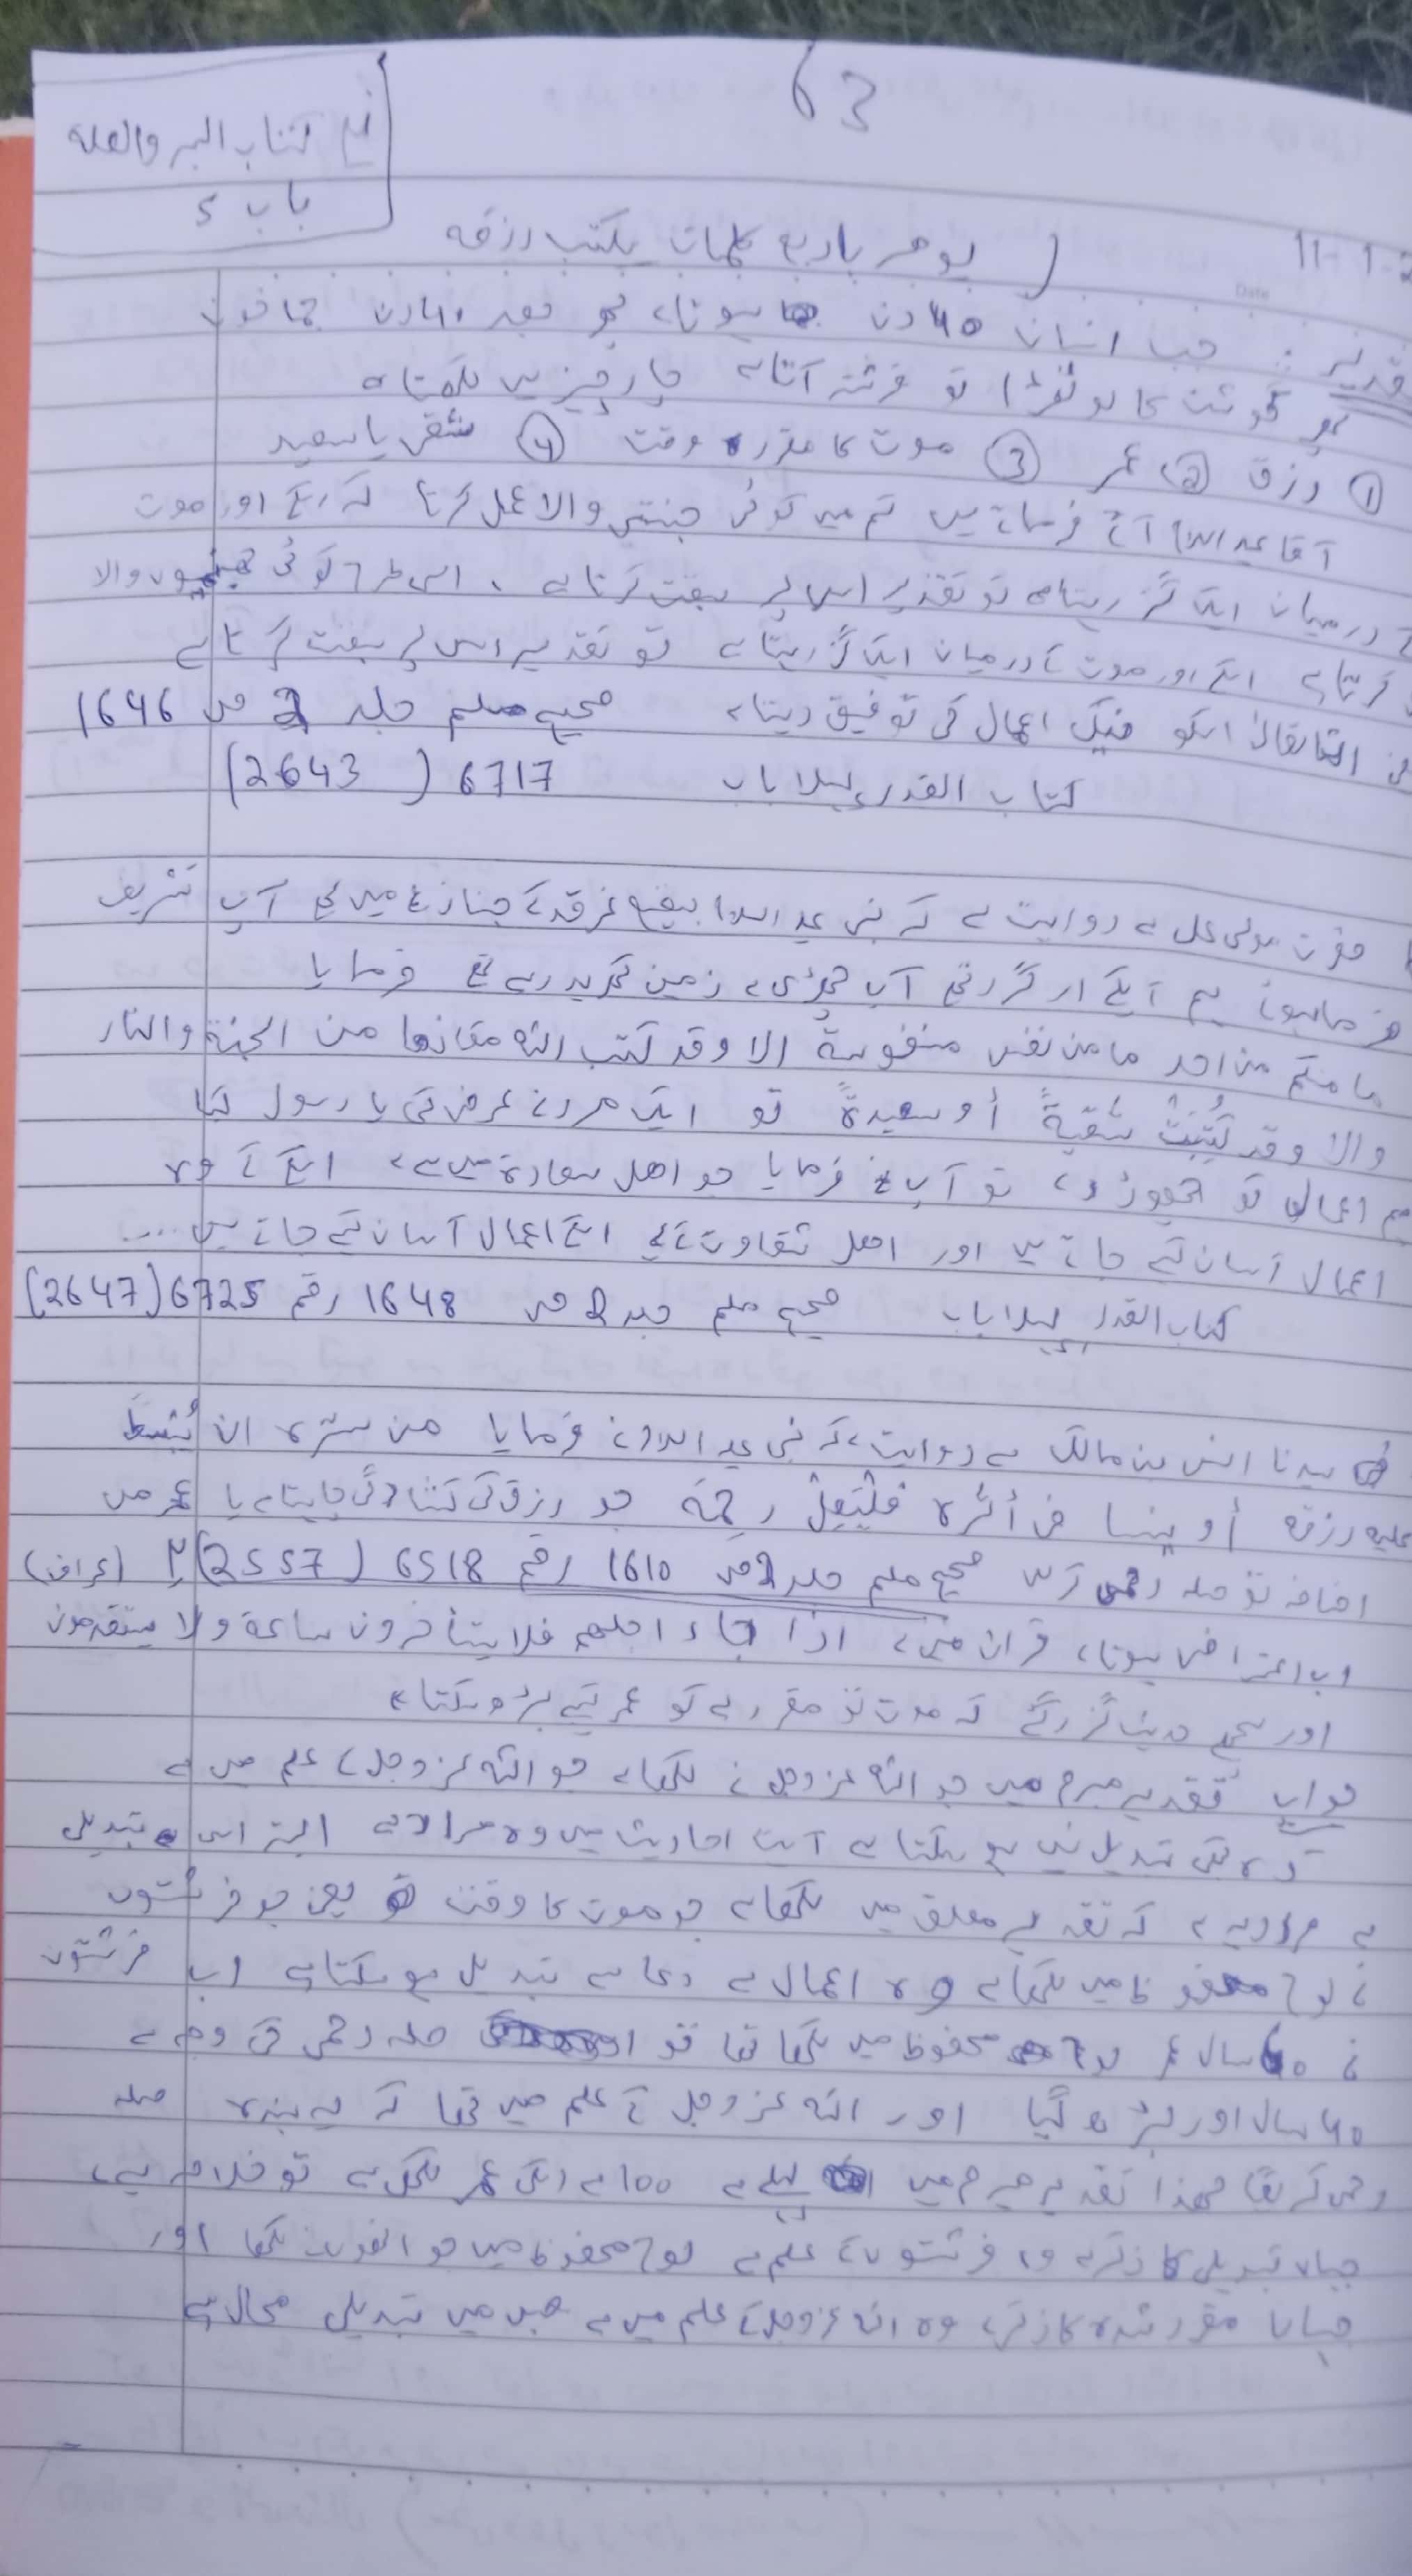 63
کتاب البر والصلۃ
باب 5
11-1-2
یومر باربع کلمات یکتب رزقہ
تقدیر : جب انسان 40 دن ہوتا، پھر بعد 40 دن جما خون
پھر گوشت کا لوتھڑا تو فرشتہ آتا ہے چار چیزیں لکھتا ہے
① رزق ② عمر ③ موت کا مقررہ وقت ④ شقی یا سعید
آقا علیہ السلام آگے فرماتے ہیں تم میں کوئی جنتی والا عمل کرتا کہ اسکے اور موت
کے درمیان ایک گز رہتا ہے تو تقدیر اس پر سبقت کرتا ہے ، اسی طرح کوئی جہنمیوں والا
کرتا ہے اسکے اور موت کے درمیان ایک گز رہتا ہے تو تقدیر اس پر سبقت کرتا ہے
اللہ تعالیٰ اسکو نیک اعمال کی توفیق دیتا ہے صحیح مسلم جلد 2 ص 1646
کتاب القدر پہلا باب 6717 (2643)
حضرت مولی علی سے روایت ہے کہ نبی علیہ السلام بقیع غرقد کے جنازے میں تھے آپ تشریف
فرما ہوئے ہم آپکے ارد گرد تھے آپ چھڑی سے زمین کرید رہے تھے فرمایا
ما منکم من احد ما من نفس منفوسۃ الا وقد کتب اللہ مقانھا من الجنۃ والنار
والا وقد کُتِبَتْ شَقیۃً أو سعیدۃً تو ایک مرد نے عرض کی یا رسول کیا
ہم اعمال کو چھوڑ دے تو آپ نے فرمایا جو اھل سعادۃ میں سے ہے اسکے لئے وہ
اعمال آسان کئے جاتے ہیں اور اھل شقاوت کے لئے اسکے اعمال آسان کئے جاتے ہیں....
کتاب القدر پہلا باب صحیح مسلم جلد 2 ص 1648 رقم 6725 (2647)
سیدنا انس بن مالک سے روایت ہے کہ نبی علیہ السلام نے فرمایا من سرہ ان یُبْسَطَ
علیہ رزقہ أو ینسا فی أثرہ فَلْیَصِلْ رحمہ جو رزق کی کشادگی چاہتا ہے یا عمر میں
اضافہ تو صلہ رحمی کریں صحیح مسلم جلد 2 ص 1610 رقم 6518 (2557)
اب اعتراض ہوتا، قرآن میں، اذا جاء اجلھم فلا یستأخرون ساعۃ ولا یستقدمون
اور صحیح حدیث گزر گئے کہ موت تو مقرر ہے تو عمر کیسے بڑھ سکتا ہے
جواب تقدیر مبرم میں جو اللہ عزوجل نے لکھا ہے جو اللہ عزوجل کے علم میں ہے
وہ بھی تبدیل نہیں ہو سکتا ہے آیت احادیث میں وہ مراد ہے البتہ اس تبدیلی
سے مراد یہ ہے کہ تقدیر معلق میں لکھا ہے جو موت کا وقت یعنی جو فرشتوں
نے لوح محفوظ میں لکھا ہے وہ اعمال سے دعا سے تبدیل ہو سکتا ہے اب فرشتوں
نے 60 سال عمر لوح محفوظ میں لکھا تھا تو صلہ رحمی کی وجہ سے
40 سال اور بڑھ گیا اور اللہ عزوجل کے علم میں تھا کہ یہ بندہ صلہ
رحمی کریگا لھذا تقدیر مبرم میں پہلے سے 100 ہے اسکی عمر لکھی ہے تو خلاصہ یہ ہے
جہاں تبدیلی کا ذکر ہے وہ فرشتوں کے علم ہے لوح محفوظ میں جو انھوں نے لکھا اور
جہاں مقرر شدہ کا ذکر ہے وہ اللہ عزوجل کے علم میں ہے جس میں تبدیلی محال ہے